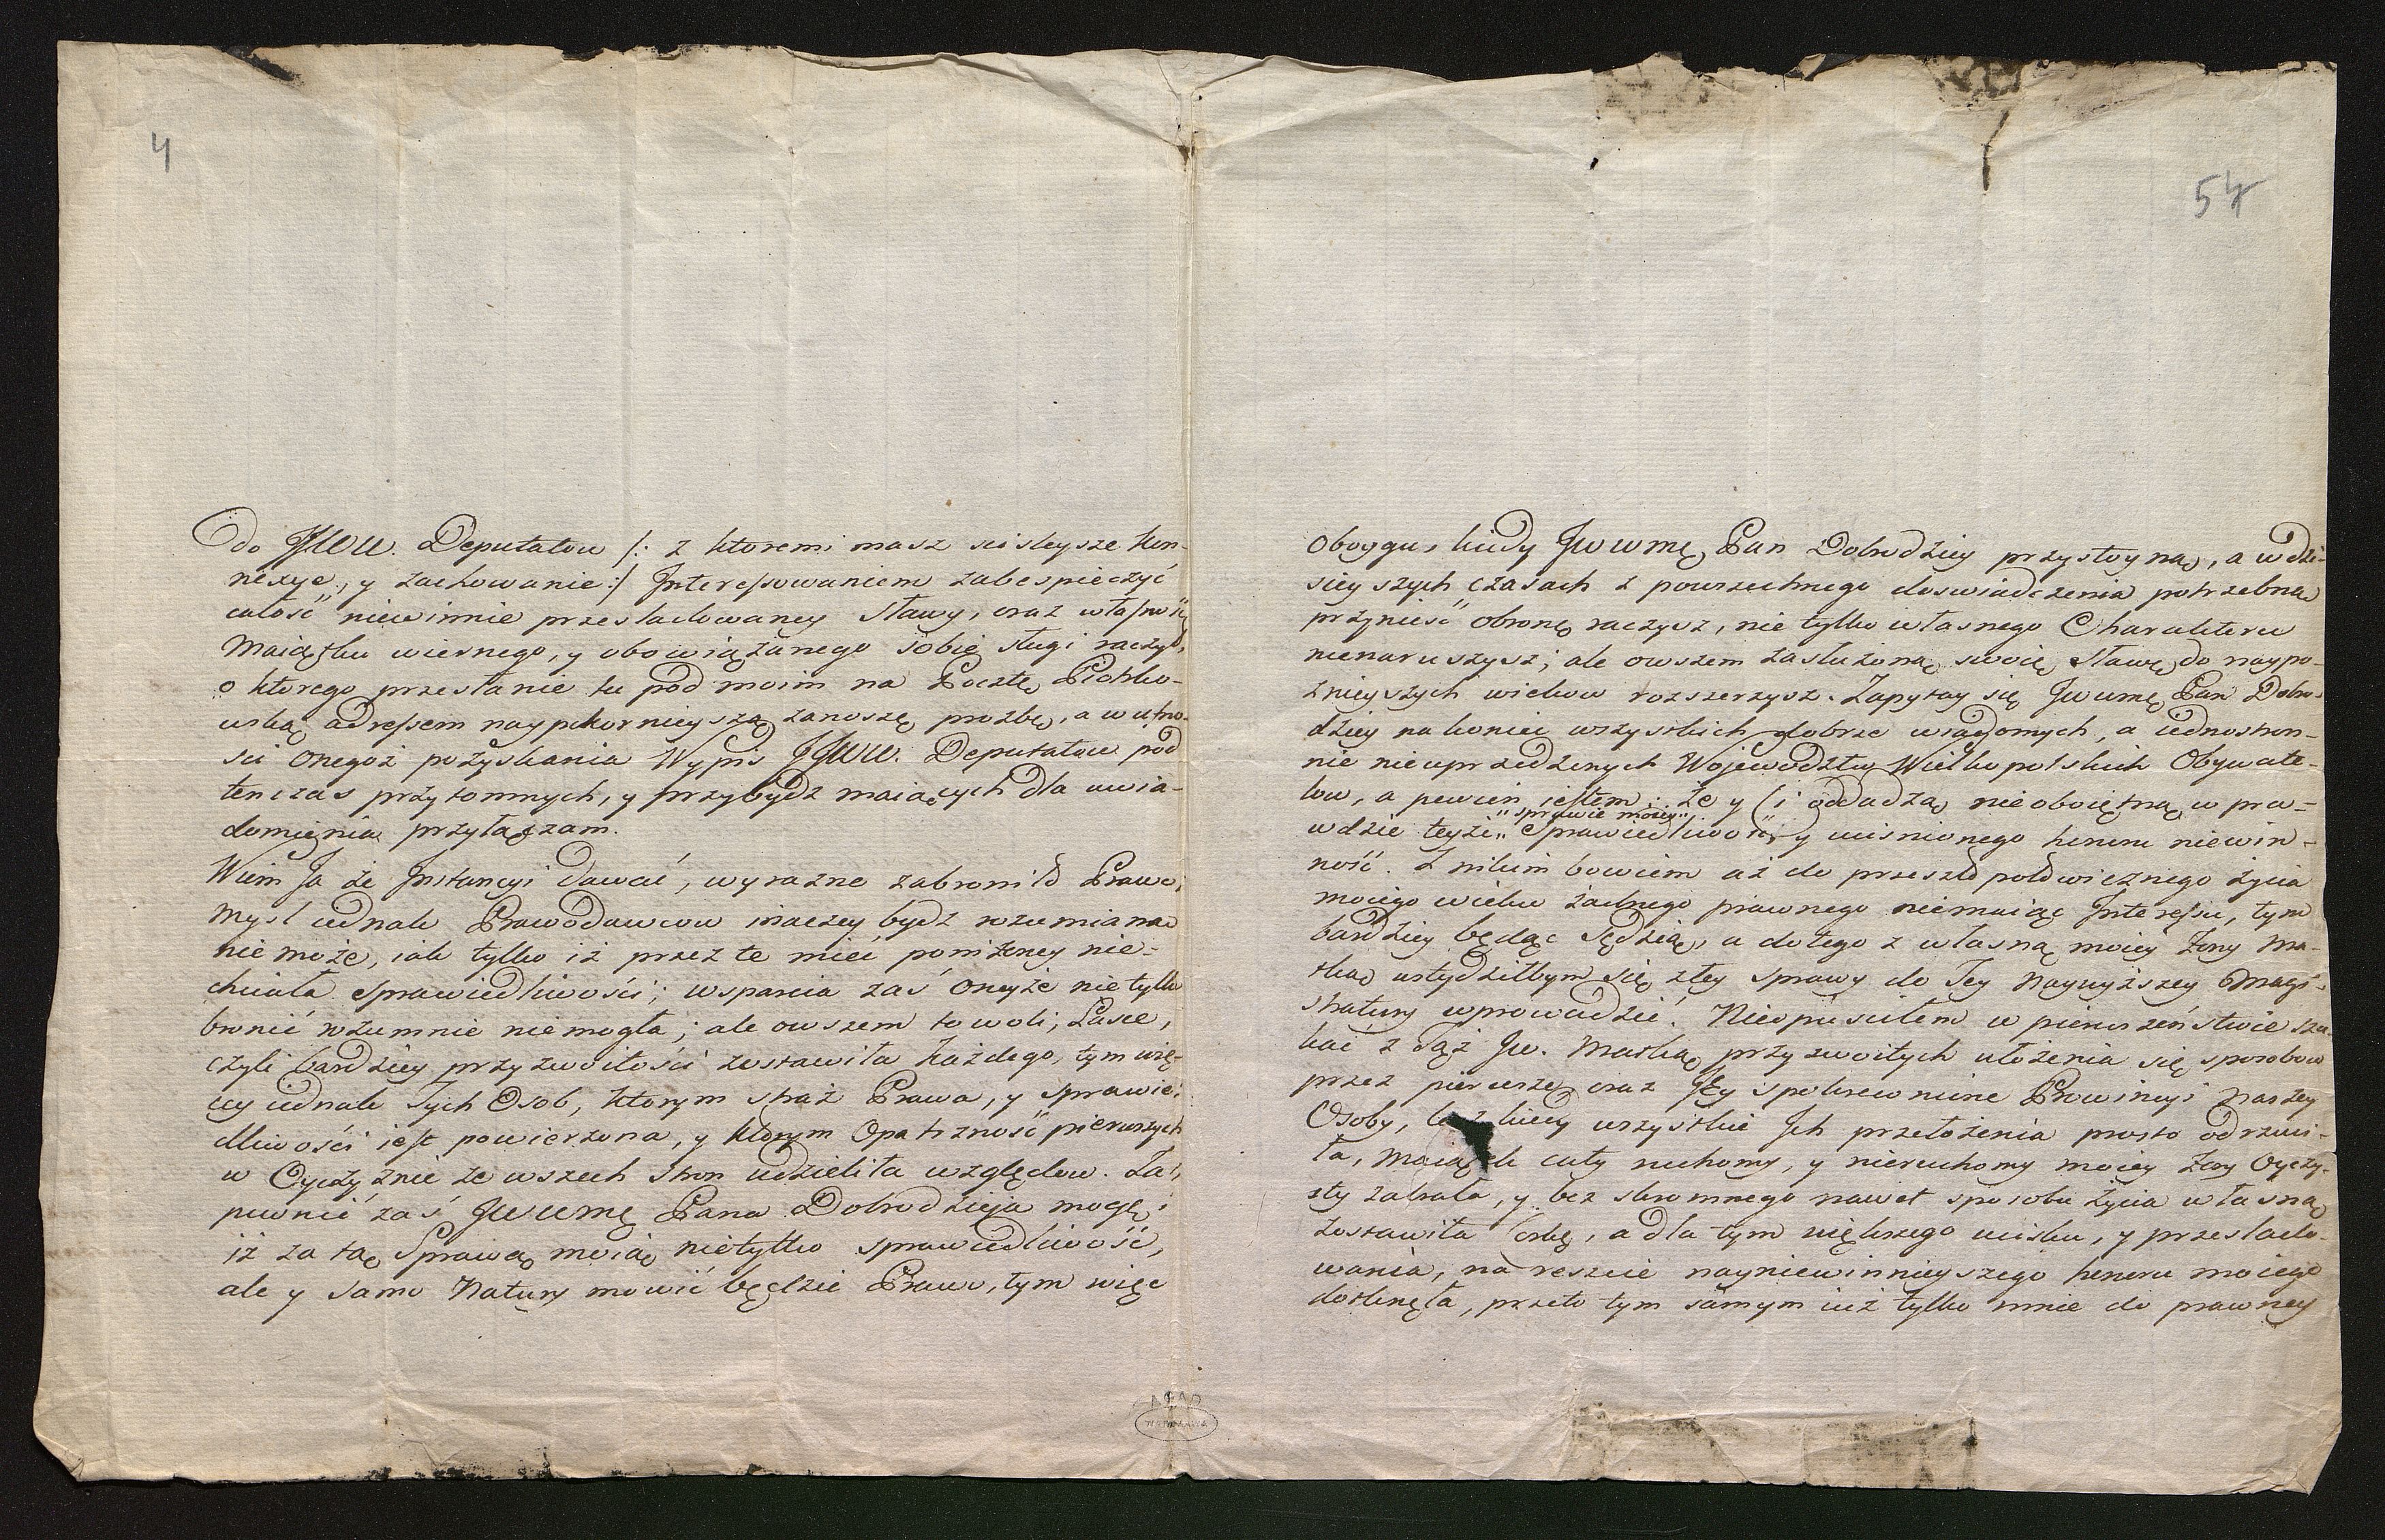 4
do JJWW. Deputatow /: z ktoremi masz scisleysze kon-
nexye, y zachowanie :/ Interessowaniem zabespieczyć
całość niewinnie przesladowaney sławy, oraz własności
Maiątku wiernego, y obowiązanego sobie sługi raczył,
o ktorego przesłanie tu pod moim na Pocztę Piotrko-
wską adressem naypokornieyszą zanoszę prozbę, a w ufno-
sci onegoż pozyskania Wypis JJWW. Deputatow pod
ten czas przytomnych, y przybydz maiących dla uwia-
domienia przyłączam.
Wiem Ja że Instancyi dawać, wyrazne zabroniło Prawo,
Mysl iednak Prawodawcow inaczey bydz rozumiana
nie może, iak tylko iż przez te mieć poniżoney nie-
chciała Sprawiedliwości; wsparcia zaś oneyże nie tylko
bronić rozumnie niemogła; ale owszem to woli, Łasce,
czyli bardziey przyzwoitości zostawiła każdego, tym wię-
cey iednak Tych Osob, ktorym straż Prawa, y Sprawie-
dliwości iest powierzona, y ktorym Opatrzność pierwszych
w Oyczyznie ze wszech stron udzieliła względow. Za-
pewnić zaś JWWMę Pana Dobrodzieja mogę,
iż za tą Sprawą moią nietylko sprawiedliwość,
ale y samo Natury mowić będzie Prawo, tym więc
54
oboygu, kiedy JWWMę Pan Dobrodziey przystoyną, a w dzi-
sieyszych czasach z powszechnego doswiadczenia potrzebną
przynieść obronę raczysz, nie tylko własnego Charakteru
nienaruszysz; ale owszem zasłużoną swoię sławę do naypo-
znieyszych wiekow rozszerzysz. Zapytay się JWWMę Pan Dobro-
dziey nakoniec wszystkich dobrze wiadomych, a iednostron-
nie nieuprzedzonych Wojewodztw Wielkopolskich Obywate-
low, a pewien iestem: że y Ci oddadzą nieoboiętną w pra-
"sprawie moiey"
wdzie teyże" Sprawiedliwość y ucisnionego honoru niewin-
ność. Z nikim bowiem aż do przeszło połowicznego życia
moiego wieku żadnego prawnego niemaiąc Interessu, tym
bardziey będąc Sędzią, a do tego z własną moiey Żony Ma-
tką wstydziłbym się złey sprawy do Tey Naywyższey Magi-
stratury wprowadzić. Nieopusciłem w pierwszeństwie szu-
kać z Tąż JW. Matką przyzwoitych ułożenia się sposobow
przez pierwsze oraz Jey spokrewnione Prowincyi Naszey
Osoby, kiedy wszystkie Ich przełożenia prosto odrzuci-
ła, Maiątek cały ruchomy, y nieruchomy moiey Żony Oyczy-
sty zabrała, y bez skromnego nawet sposobu życia własną
zostawiła Corkę, a dla tym większego ucisku, y przeslado-
wania, na reszcie nayniewinnieyszego honoru moiego
dotknęła, przeto tym samym iuż tylko mnie do prawney
AGAD
WARSZAWA